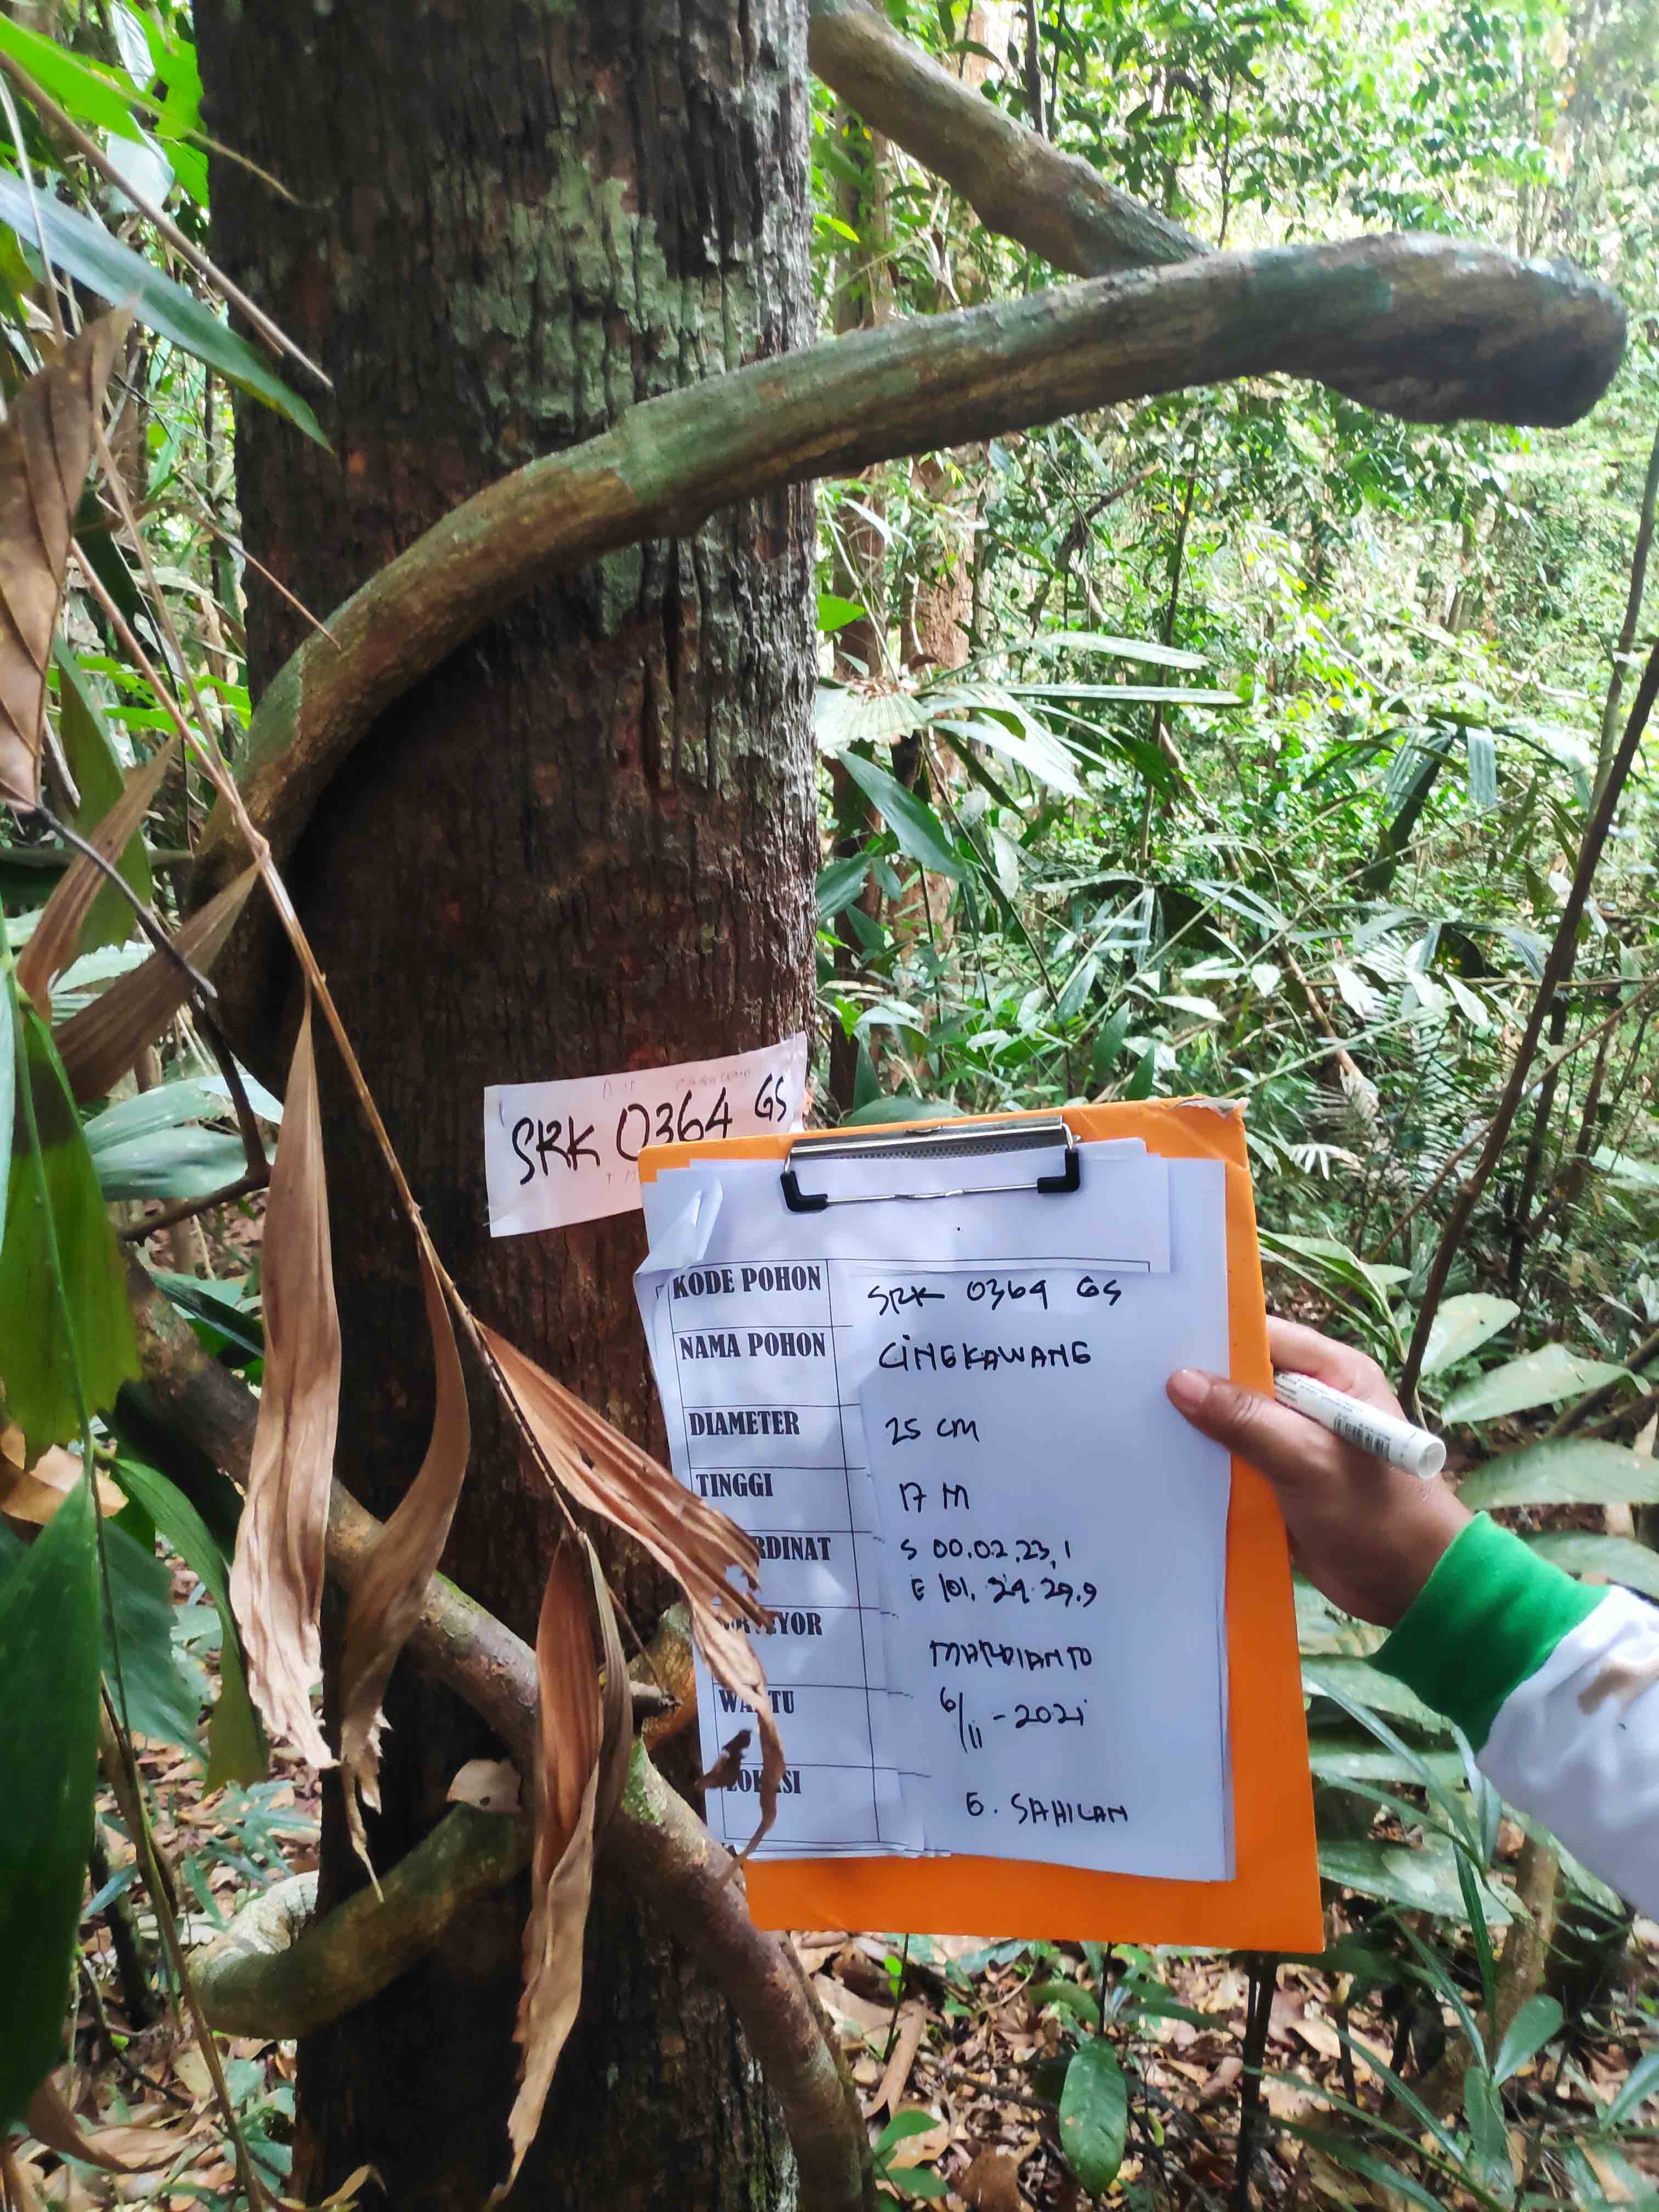 SRK 0364 GS
KODE POHON SRK 0364 GS
NAMA POHON CINGKAWANG
DIAMETER 25 CM
TINGGI 17 M
RDINAT S 00.02.23,1
E 101. 29. 29.9
YOR MARDIANTO
WAKTU 6/11-2021
LOKASI G. SAHILAN